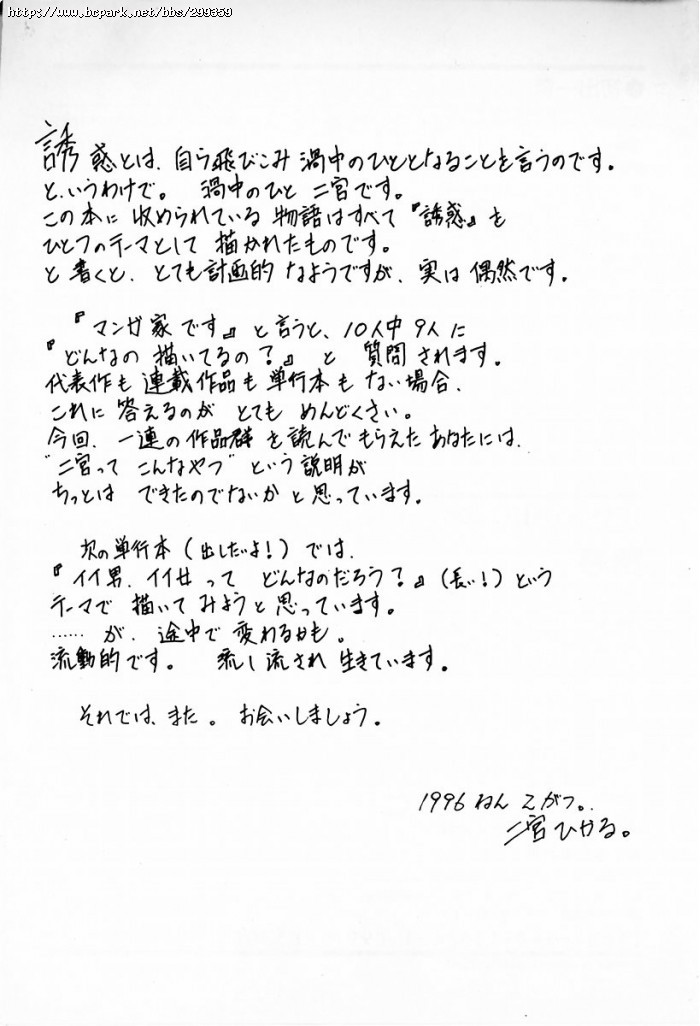 https://www.bcpark.net/bbs/299359
誘惑とは、自ら飛びこみ 渦中のひととなることを言うのです。
というわけで。 渦中のひと 二宮です。
この本に 収められている 物語はすべて『誘惑』を
ひとつのテーマとして 描かれたものです。
と書くと、とても計画的 なようですが、実は 偶然です。
『マンガ家です』と言うと、10人中9人に
『どんなの 描いてるの?』と 質問されます。
代表作も 連載作品も 単行本も ない場合、
これに 答えるのが とても めんどくさい。
今回、一連の作品群を読んでもらえた あなたには、
"二宮って こんなやつ"という説明が
ちっとは できたのでないかと思っています。
次の単行本(出したいよ!)では、
『イイ男、イイ女って どんなのだろう?』(長い!)という
テーマで 描いてみようと思っています。
……が、途中で 変わるかも。
流動的です。 流し流され 生きています。
それでは、また。 お会いしましょう。
1996ねん 2がつ。
二宮ひかる。